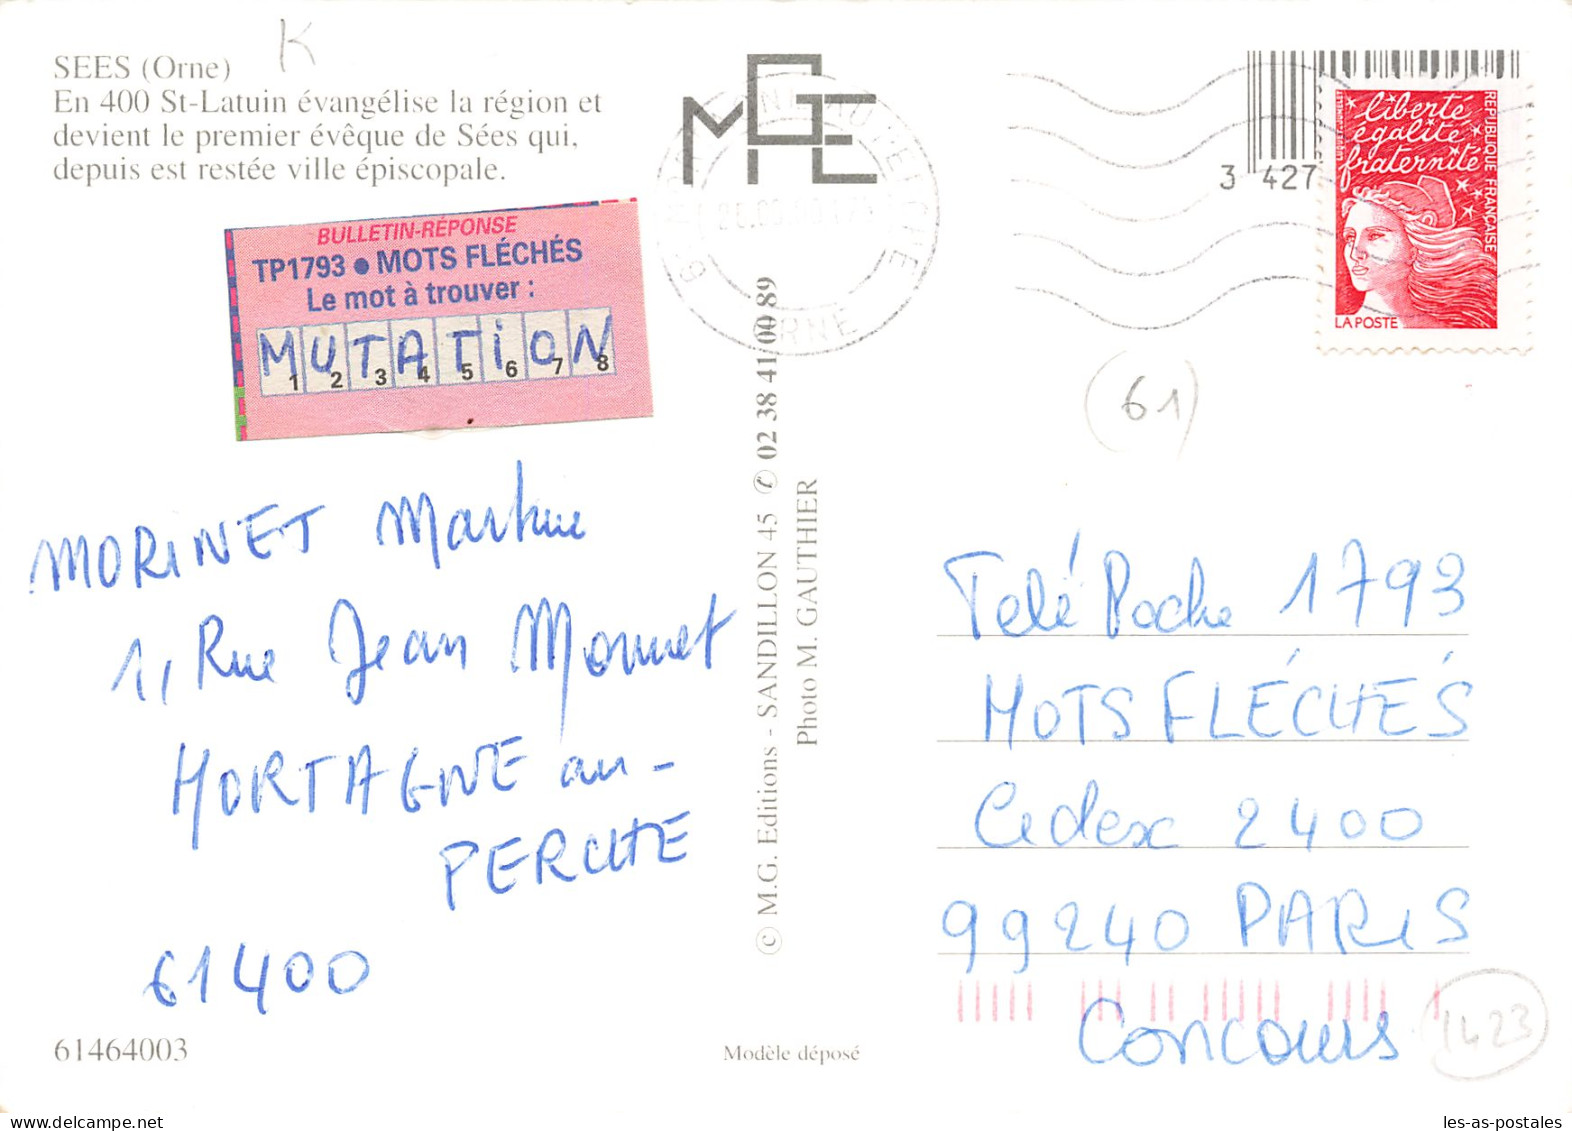 K
SEES (Orne)
En 400 St-Latuin évangélise la région et
devient le premier évêque de Sées qui,
depuis est restée ville épiscopale.
BULLETIN-RÉPONSE
TP1793 ● MOTS FLÉCHÉS
Le mot à trouver :
MUTATiON
1 2 3 4 5 6 7 8
MORINET Martine
1, Rue Jean Monnet
MORTAGNE au-
PERCHE
61400
61464003
MGE
© M.G. Editions - SANDILLON 45 ✆ 02 38 41 00 89
Photo M. GAUTHIER
Modèle déposé
ORNE
3 427
liberté
égalité
fraternité
RÉPUBLIQUE FRANÇAISE
LA POSTE
(61)
Télé Poche 1793
MOTS FLÉCHÉS
Cedex 2400
99240 PARIS
Concours
1423
les-as-postales